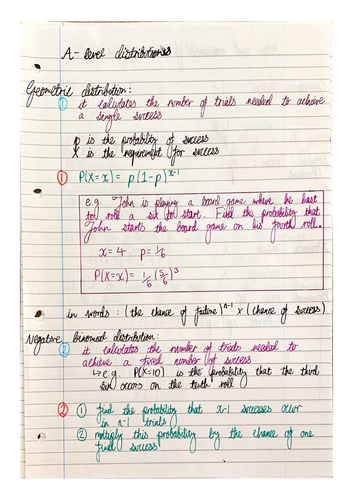 A-level distributions
Geometric distribution:
① it calculates the number of trials needed to achieve
a single success
p is the probability of success
X is the requirement for success
① P(X=x) = p(1-p)^x-1
e.g. John is playing a board game where he has
to roll a six to start. Find the probability that
John starts the board game on his fourth roll.
x=4 p=1/6
P(X=x) = 1/6 (5/6)^3
in words: (the chance of failure)^n-1 × (chance of success)
Negative Binomial distribution:
② it calculates the number of trials needed to
achieve a fixed number of success
↳ e.g. P(X=10) is the probability that the third
six occurs on the tenth roll
② ① find the probability that x-1 successes occur
in n-1 trials
② multiply this probability by the chance of one
final success